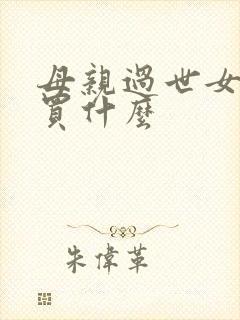 母親過世女
買什麼
朱偉革